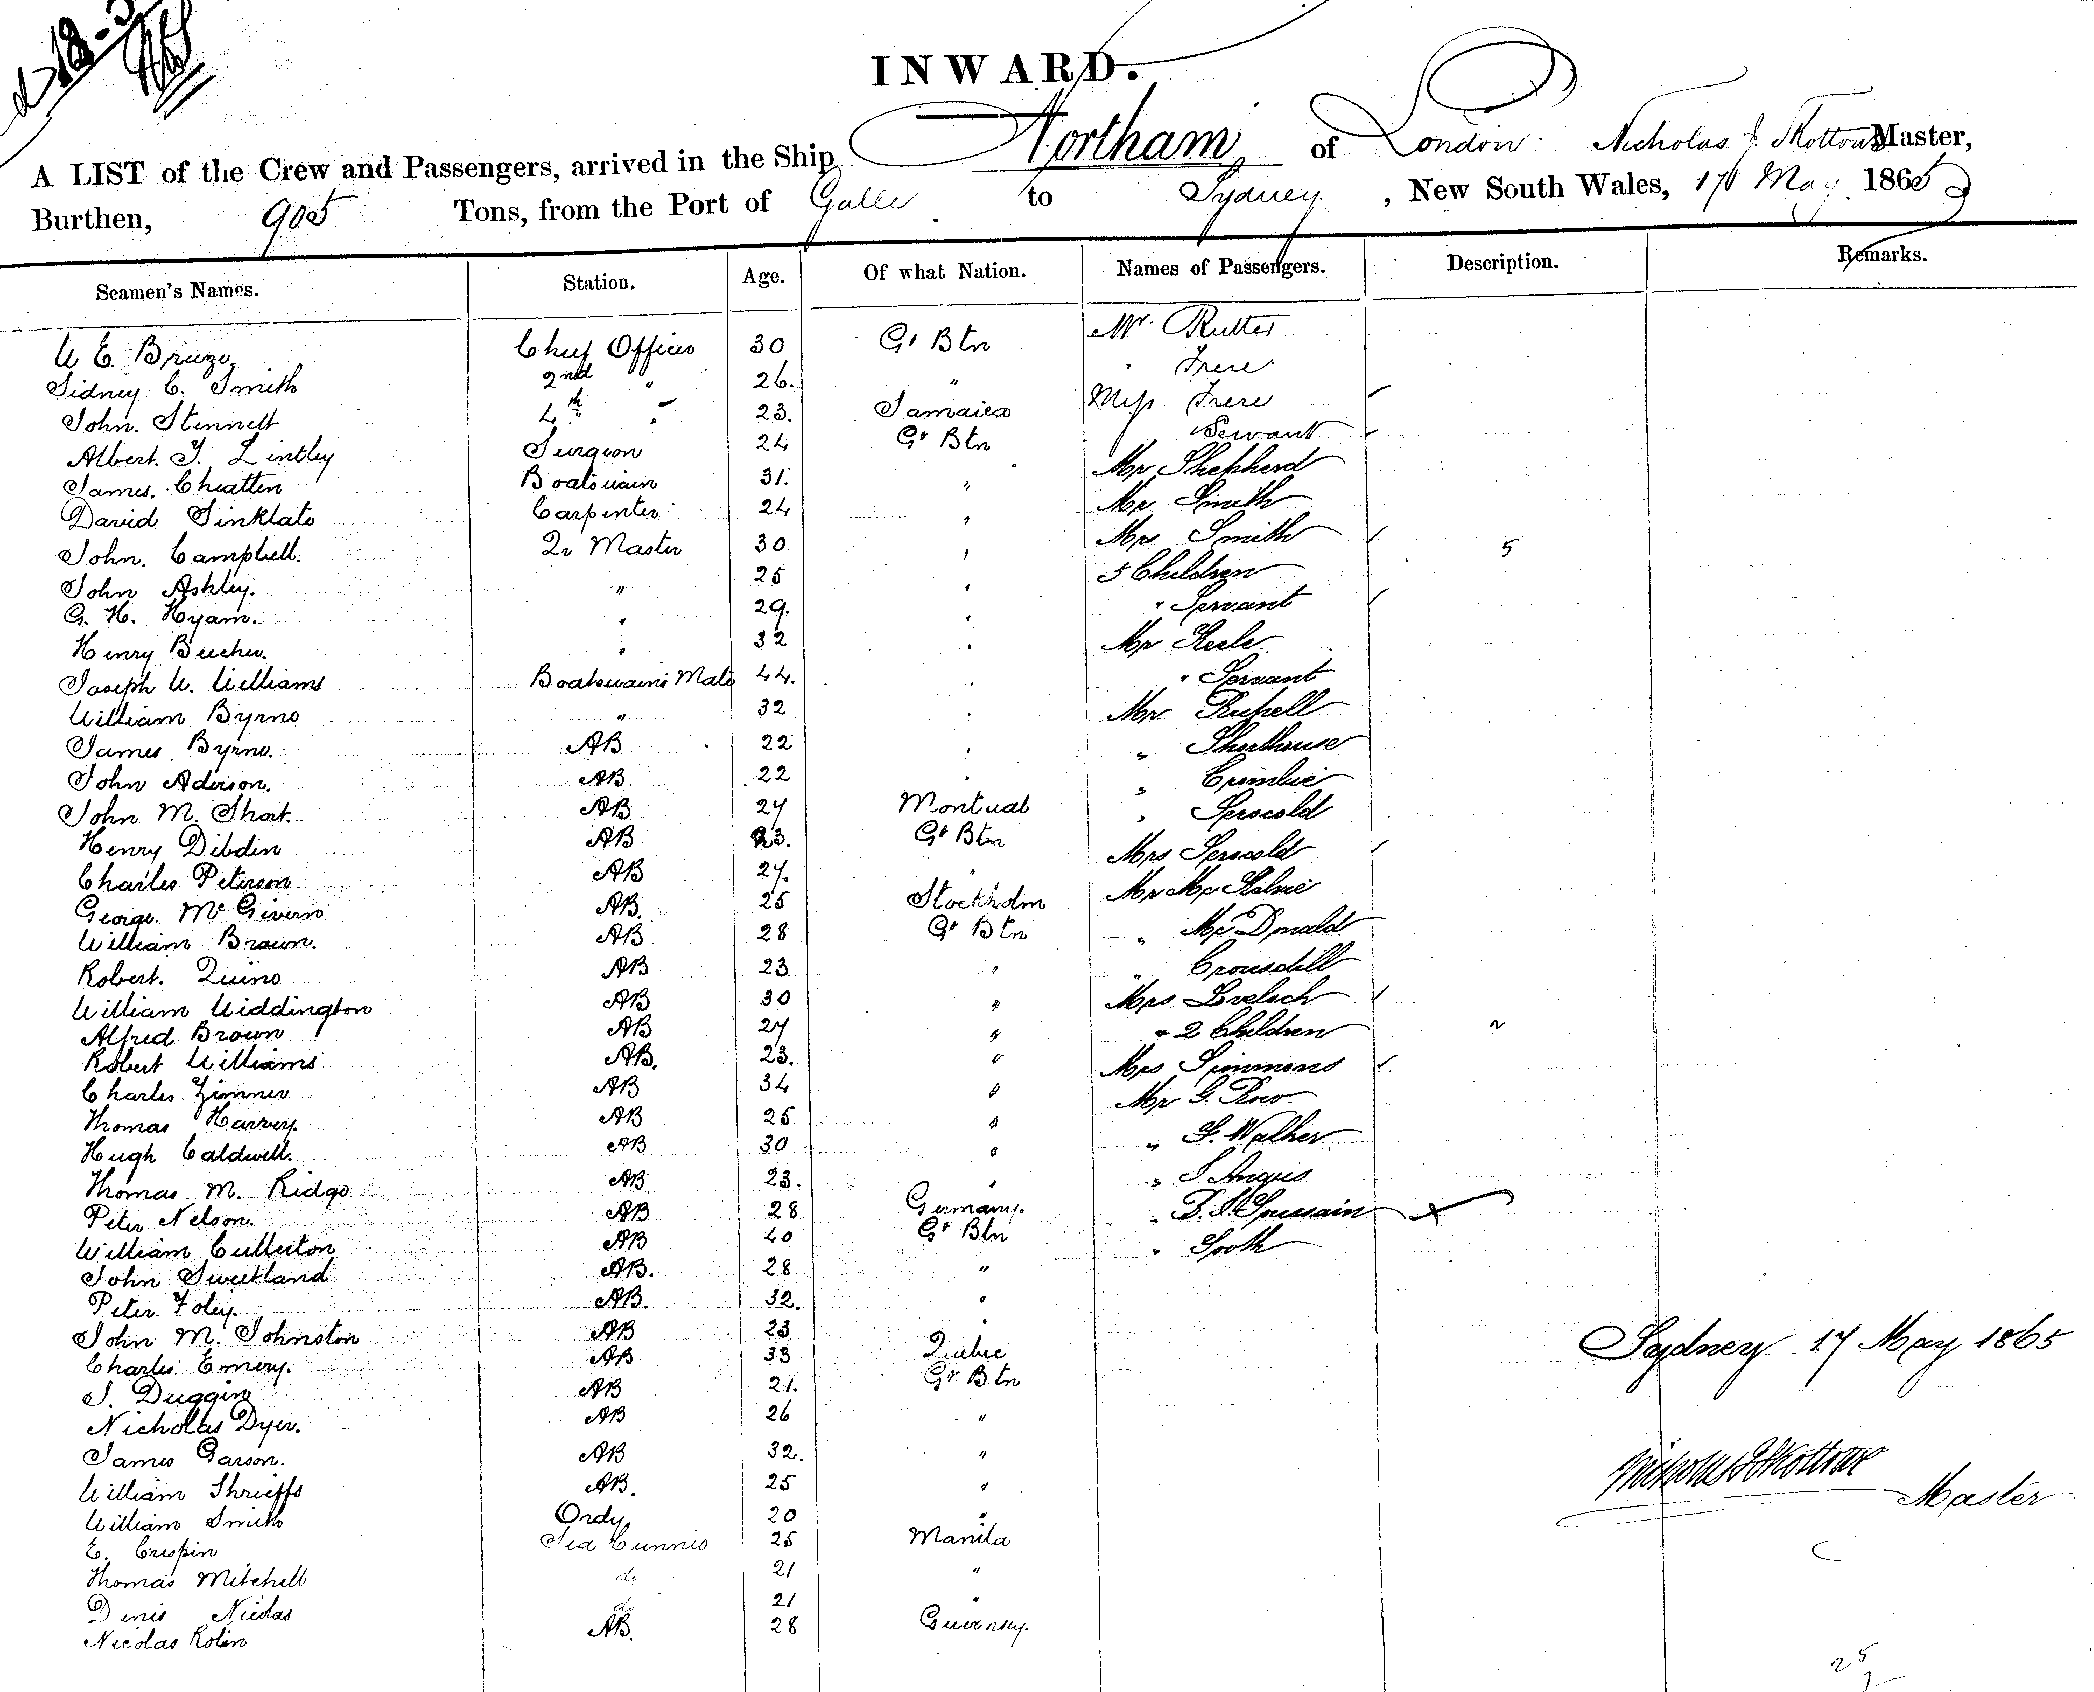 INWARD.
A LIST of the Crew and Passengers, arrived in the Ship Northam, of London Nicholas J. Skottowe Master,
Burthen, 905 Tons, from the Port of Galle to Sydney, New South Wales, 17 May 1865
Seamen's Names. Station. Age. Of what Nation. Names of Passengers. Description. Remarks.
W E. Breeze Chief Officer 30 Gt Btn Mr. Rutter
Sidney C. Smith 2nd " 26. " " Frere
John. Stennett 4th " 23. Jamaica Miss Frere
Albert. J. Lintley Surgeon 24 Gt Btn Servant
James. Cheatten Boatswain 31. " Mr Shepherd
David Sinklate Carpenter 24 " Mr Smith
John. Campbell. Qr Master 30 " Mrs Smith 5
John Ashley. " 25 " 5 Children
G. H. Hyam. " 29. " " Servant
Henry Beecher. " 32 " Mr Steele
Joseph W. Williams Boatswains Mate 44. " " Servant
William Byrne " 32 " Mr Russell
James Byrne. AB 22 " " Shorthouse
John Aderson. AB 22 " " Crombie
John M. Short. AB 27 Montreal "
Henry Dibdin AB 23. Gt Btn Mrs
Charles Peterson AB 27. " Mr
George. McGivern AB. 25 Stockholm " McDonald
William Brown. AB 28 Gt Btn " Crousdill
Robert. Quino AB 23 " Mrs
William Widdington AB 30 " " 2 Children 2
Alfred Brown AB 27 " Mrs Simmons
Robert Williams AB. 23. " Mr G. Row
Charles Zimmer AB 34 " " G. Walker
Thomas Harvey. AB 25 " " J Angus
Hugh Caldwell. AB 30 "
Thomas M. Ridge AB 23. " " Tooth
Peter Nelson. AB 28 Germany.
William Cullerton AB 40 Gt Btn
John Sweetland AB. 28 "
Peter Foley. AB. 32. "
John M. Johnston AB 23 "
Charles Emery. AB 33 Quebec
J. Duggin AB 21. Gt Btn
Nicholas Dyer. AB 26 "
James Garson. AB 32. "
William Shrieffs AB. 25 "
William Smith Ordy 20 "
E. Crispin Sea Cunnie 25 Manila
Thomas Mitchell do 21 "
Denis Nicolas do 21 "
Nicolas Rolin AB. 28 Guernsey.
Sydney 17 May 1865
Nicholas J Skottowe
Master
25